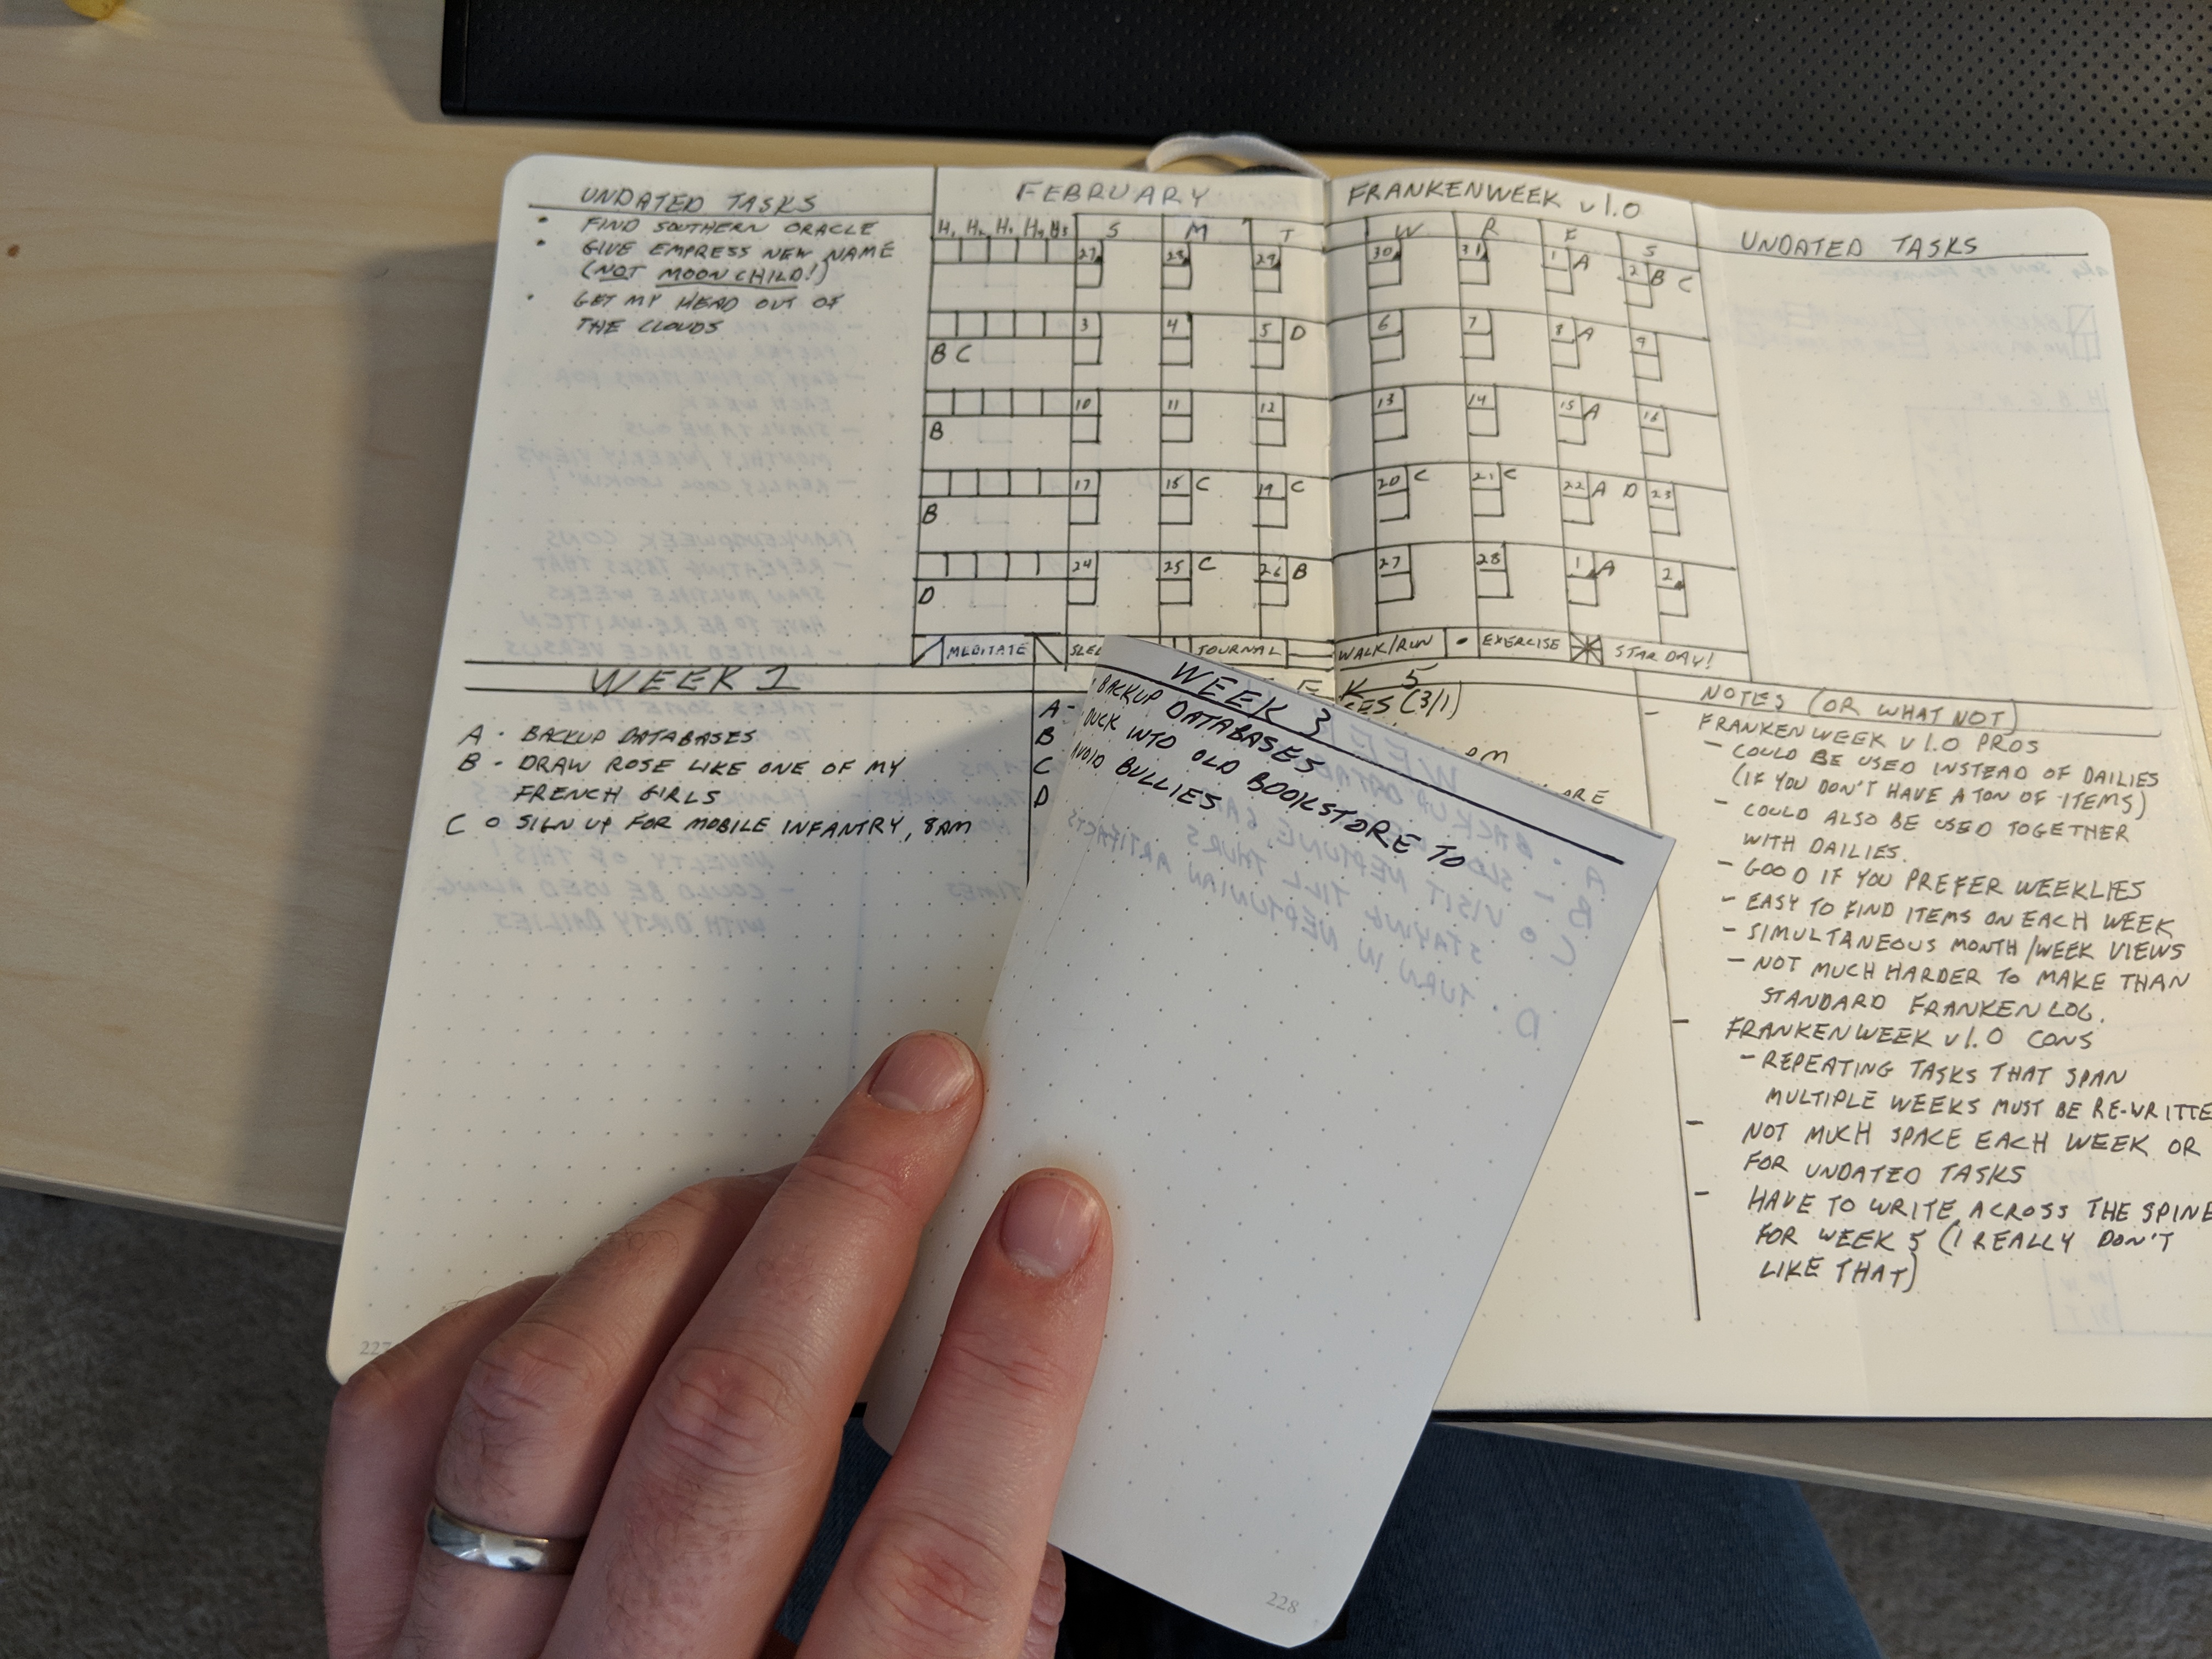 UNDATED TASKS
• FIND SOUTHERN ORACLE
• GIVE EMPRESS NEW NAME
(NOT MOON CHILD!)
• GET MY HEAD OUT OF
THE CLOUDS
FEBRUARY
H₁ H₂ H₃ H₄ H₅ S M T
27 28 29
3 4 5 D
B C
10 11 12
B
17 18 C 19 C
B
24 25 C 26 B
D
MEDITATE
JOURNAL
FRANKENWEEK v1.0
W R F S
30 31 1 A 2 B C
6 7 8 A 9
13 14 15 A 16
20 C 21 C 22 A D 23
27 28 1 A 2
WALK/RUN • EXERCISE STAR DAY!
UNDATED TASKS
WEEK 1
A • BACKUP DATABASES
B - DRAW ROSE LIKE ONE OF MY
FRENCH GIRLS
C o SIGN UP FOR MOBILE INFANTRY, 8AM
A -
B
C
D
WEEK 3
• BACKUP DATABASES
DUCK INTO OLD BOOKSTORE TO
AVOID BULLIES
228
5
(3/1)
NOTES (OR WHAT NOT)
- FRANKENWEEK v1.0 PROS
- COULD BE USED INSTEAD OF DAILIES
(IF YOU DON'T HAVE A TON OF ITEMS)
- COULD ALSO BE USED TOGETHER
WITH DAILIES.
- GOOD IF YOU PREFER WEEKLIES
- EASY TO FIND ITEMS ON EACH WEEK
- SIMULTANEOUS MONTH/WEEK VIEWS
- NOT MUCH HARDER TO MAKE THAN
STANDARD FRANKENLOG.
- FRANKENWEEK v1.0 CONS
- REPEATING TASKS THAT SPAN
MULTIPLE WEEKS MUST BE RE-WRITTE
- NOT MUCH SPACE EACH WEEK OR
FOR UNDATED TASKS
- HAVE TO WRITE ACROSS THE SPINE
FOR WEEK 5 (I REALLY DON'T
LIKE THAT)
227